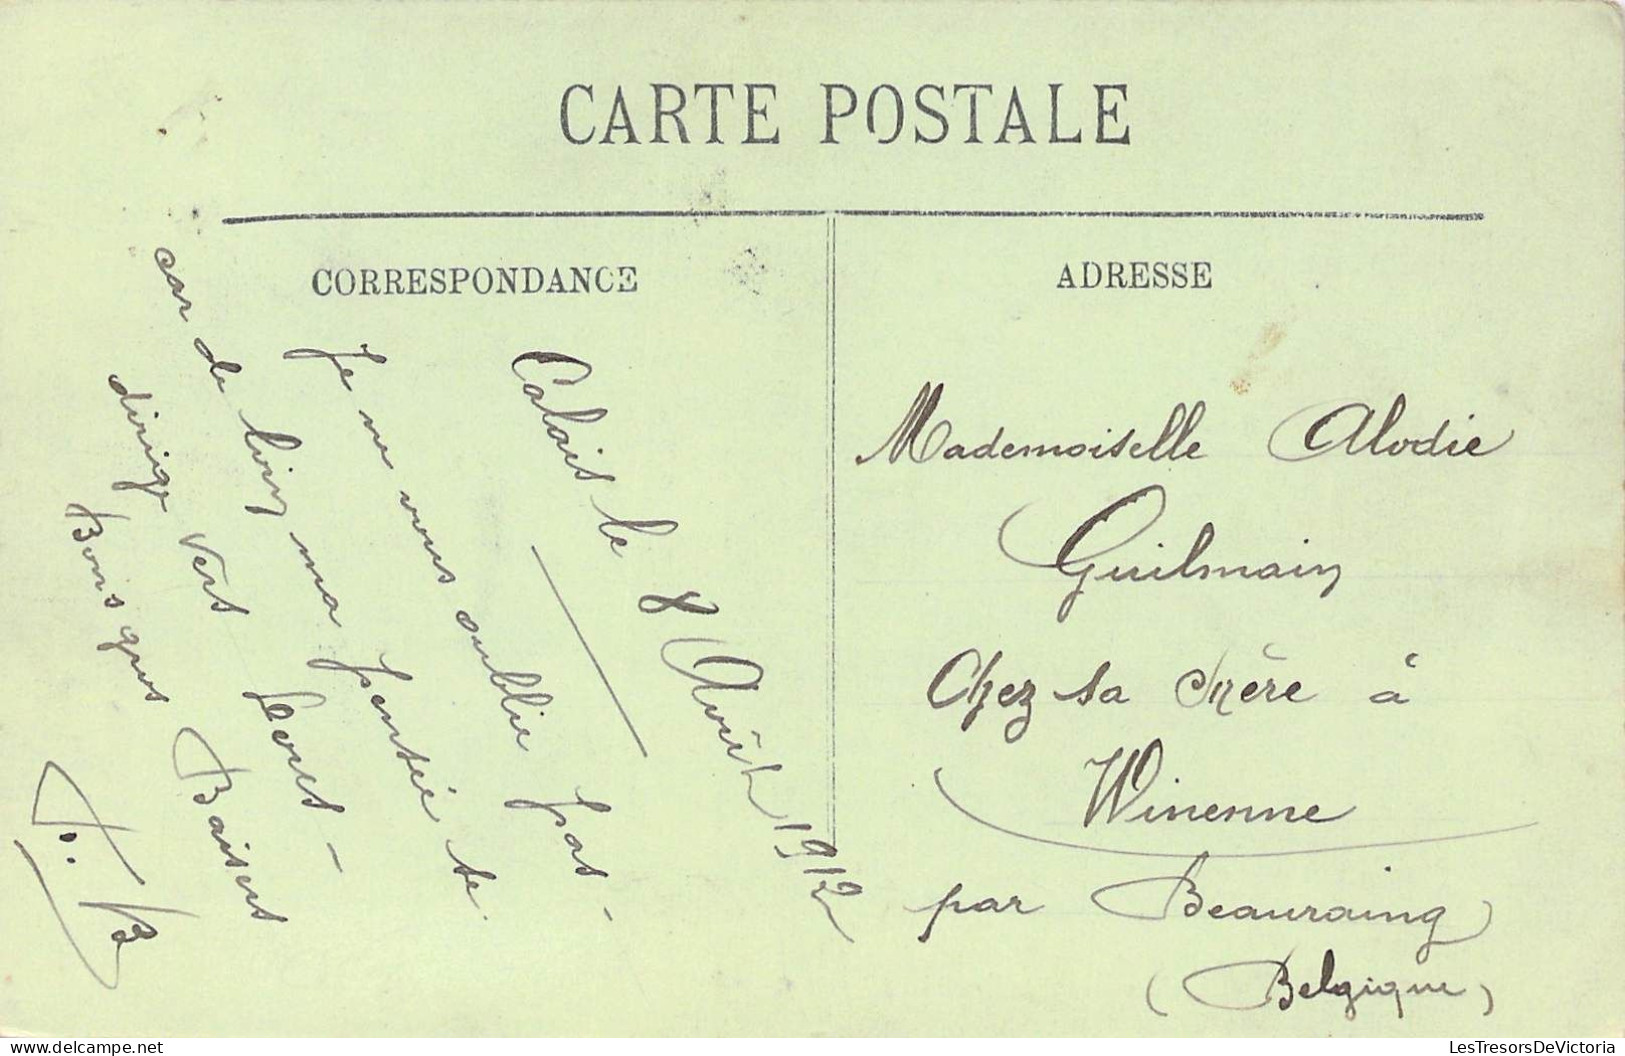 CARTE POSTALE
CORRESPONDANCE
Calais le 8 Août 1912
Je ne vous oublie pas -
car de loin ma pensée se
dirige vers vous -
Bons gros Baisers
F. B
ADRESSE
Mademoiselle Alodie
Guilmain
Chez sa Mère à
Winenne
par Beauraing
(Belgique)
LesTresorsDeVictoria
delcampe.net